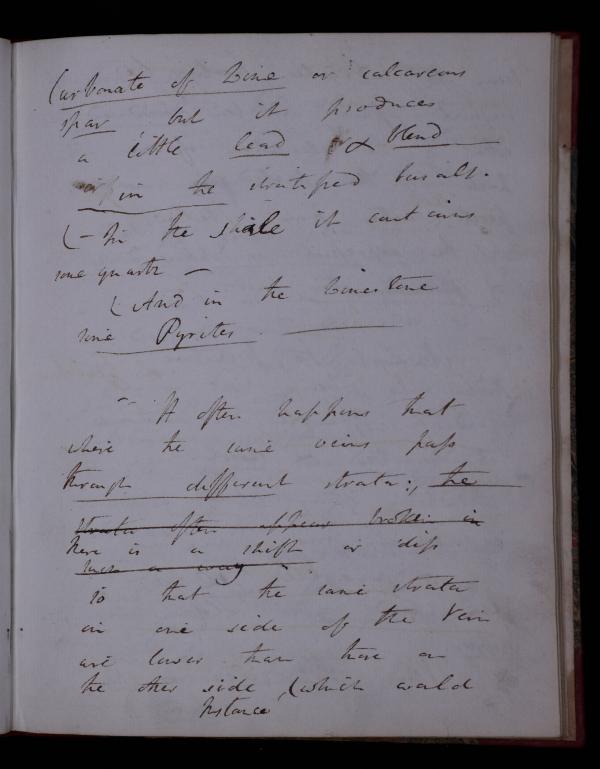 Carbonate of Lime or calcareous
spar but it produces
a little lead & blend
in the stratified basalt.
(– In the shale it contains
some quartz –
(And in the Limestone
some Pyrites.
It often happens that
where the same veins pass
through different strata:, the
strata often appear broken in
there is a shift or dip
such a way
so that the same strata
on one side of the Vein
are lower than those on
the other side, (which would
Instance